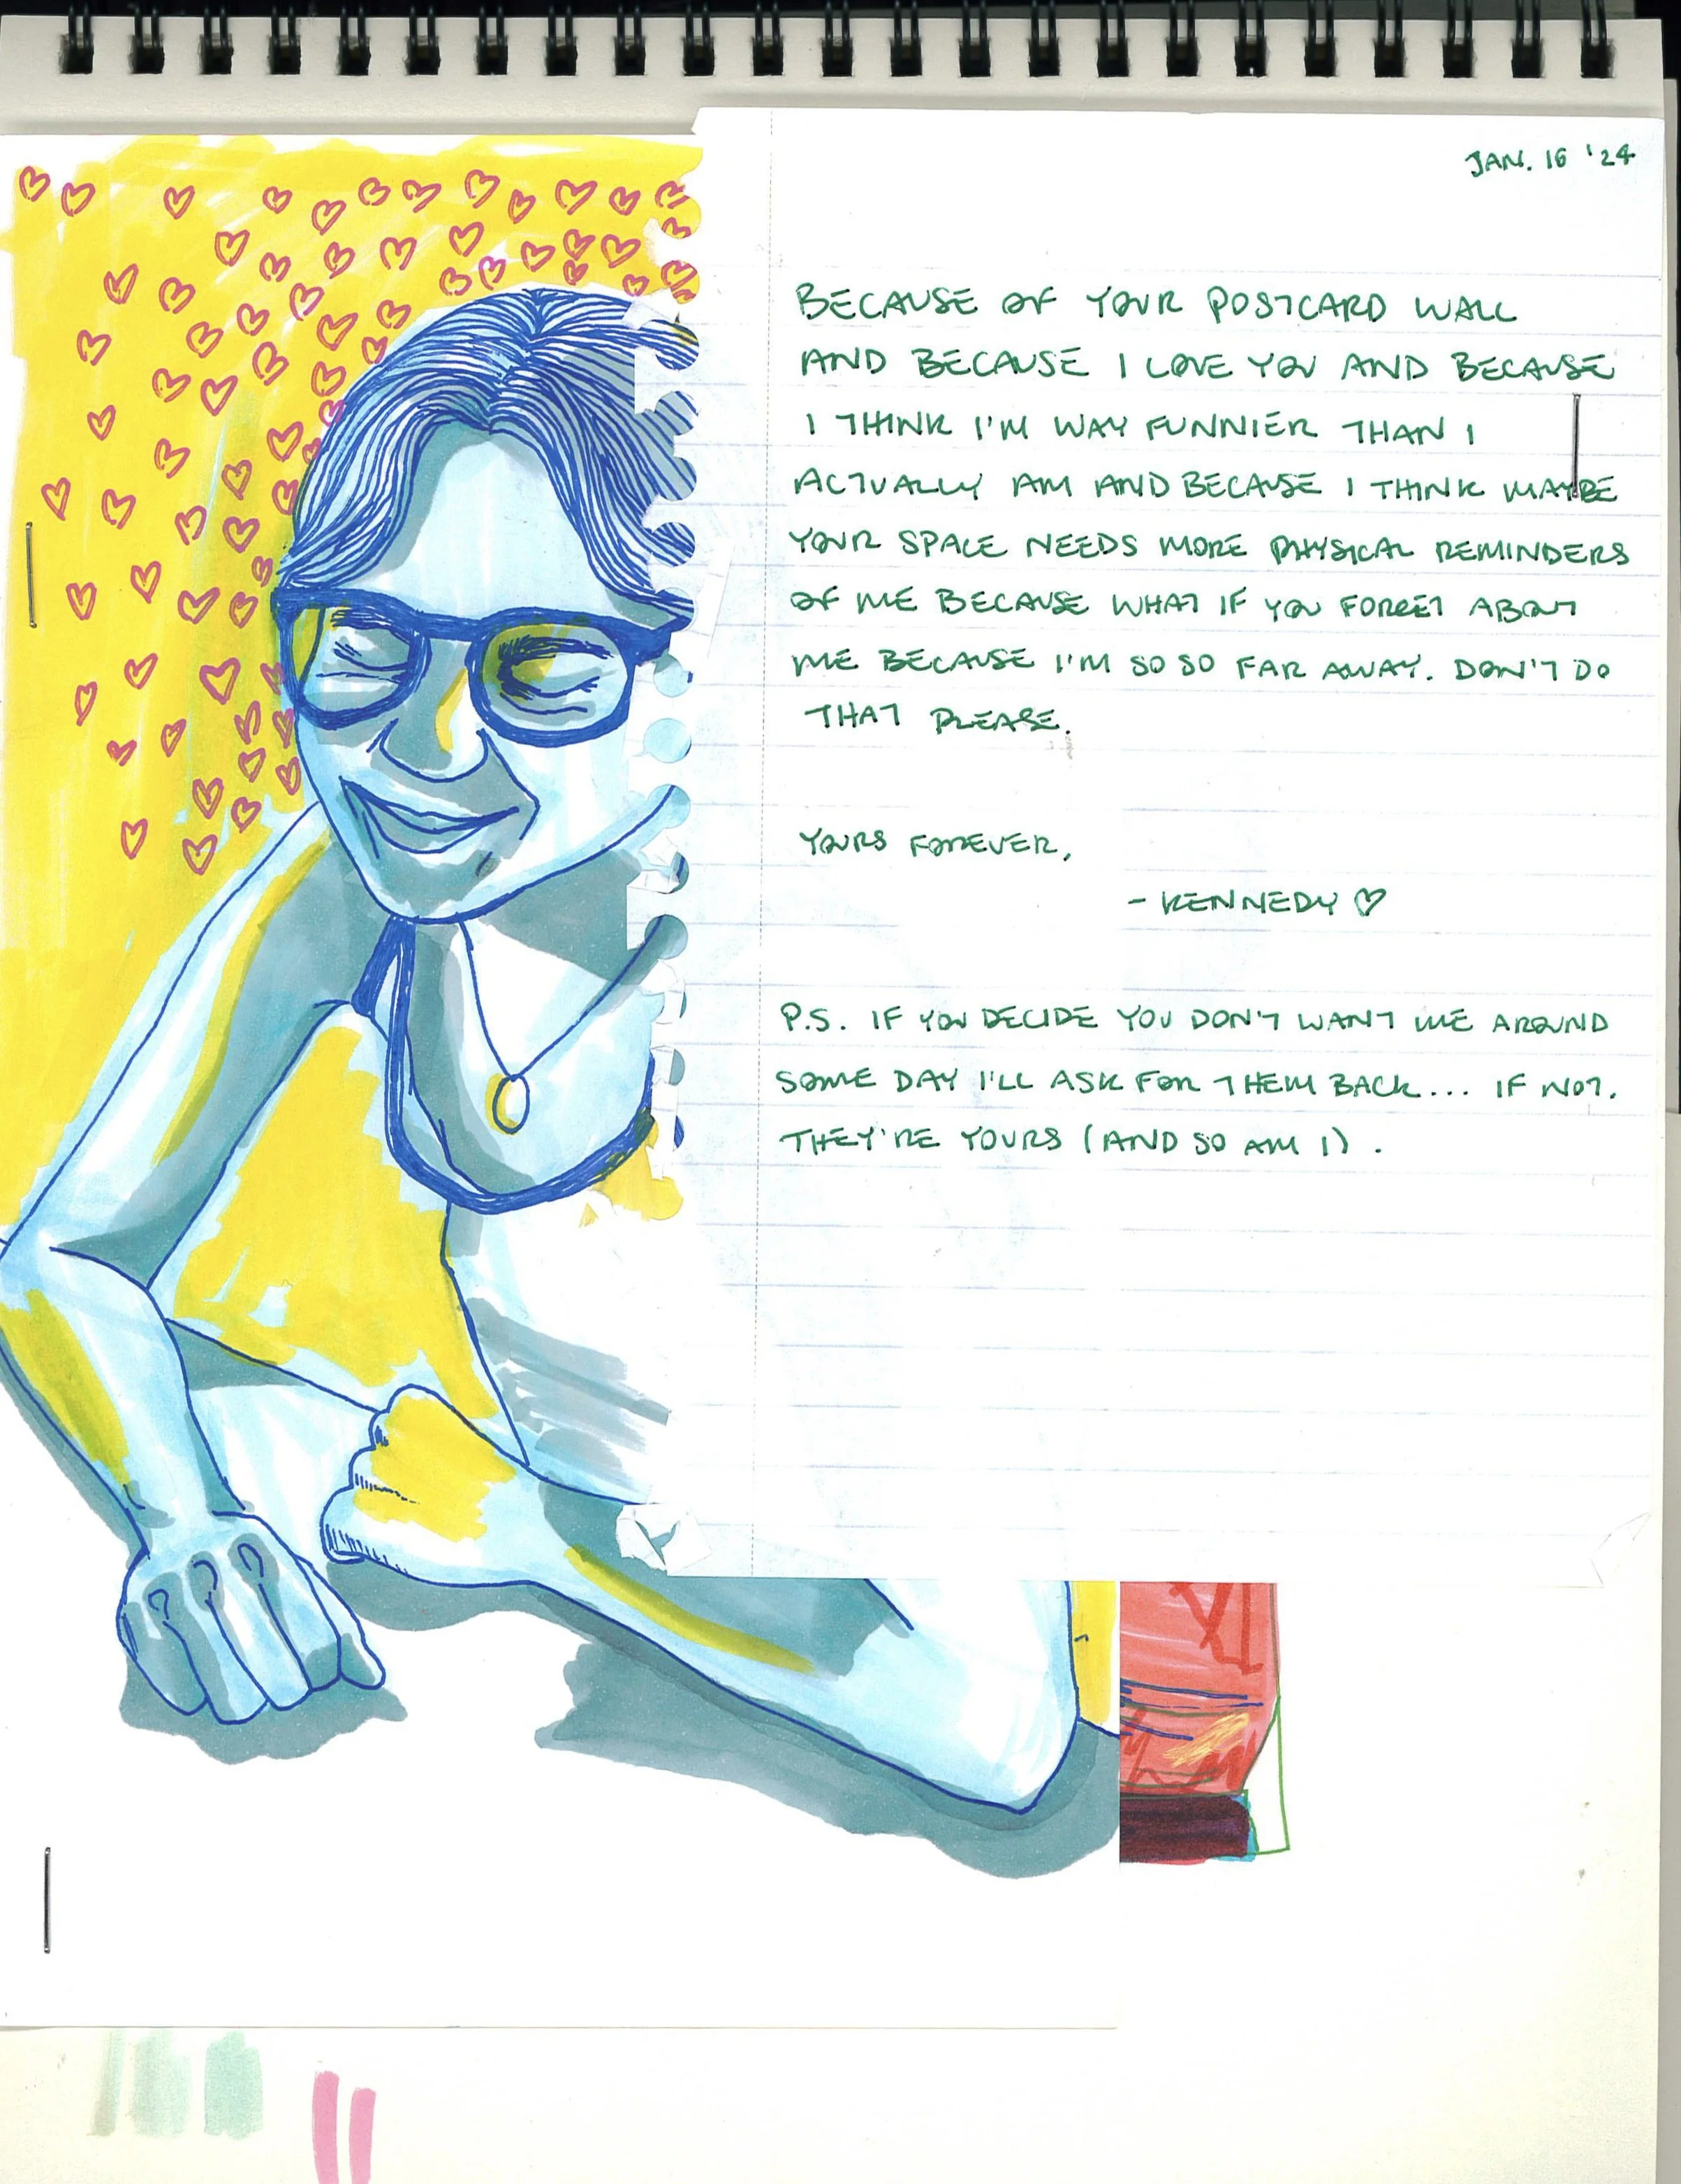 JAN. 16 '24
BECAUSE OF YOUR POSTCARD WALL
AND BECAUSE I LOVE YOU AND BECAUSE
I THINK I'M WAY FUNNIER THAN I
ACTUALLY AM AND BECAUSE I THINK MAYBE
YOUR SPACE NEEDS MORE PHYSICAL REMINDERS
OF ME BECAUSE WHAT IF YOU FORGET ABOUT
ME BECAUSE I'M SO SO FAR AWAY. DON'T DO
THAT PLEASE.
YOURS FOREVER,
- KENNEDY ♡
P.S. IF YOU DECIDE YOU DON'T WANT ME AROUND
SOME DAY I'LL ASK FOR THEM BACK... IF NOT.
THEY'RE YOURS (AND SO AM I).